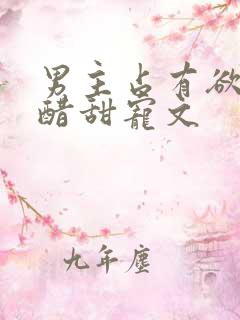 男主占有欲
醋甜寵文
九年塵